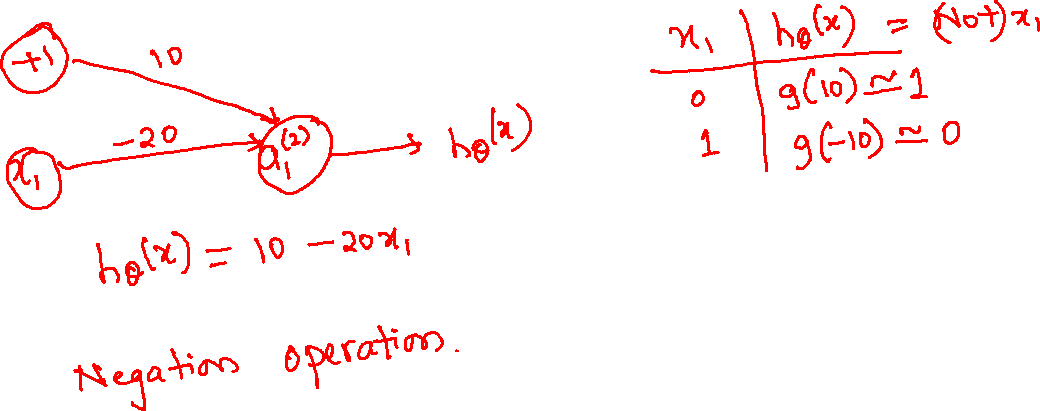 +1
10
-20
x₁
a₁⁽²⁾
h_θ(x)
h_θ(x) = 10 - 20x₁
Negation operation.
x₁ | h_θ(x) = (Not) x₁
0 | g(10) ≃ 1
1 | g(-10) ≃ 0